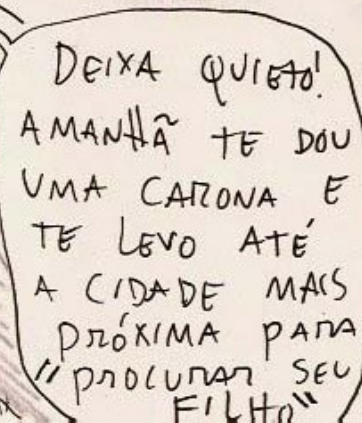 DEIXA QUIETO!
AMANHÃ TE DOU
UMA CARONA E
TE LEVO ATÉ
A CIDADE MAIS
PRÓXIMA PARA
"PROCURAR SEU
FILHO"